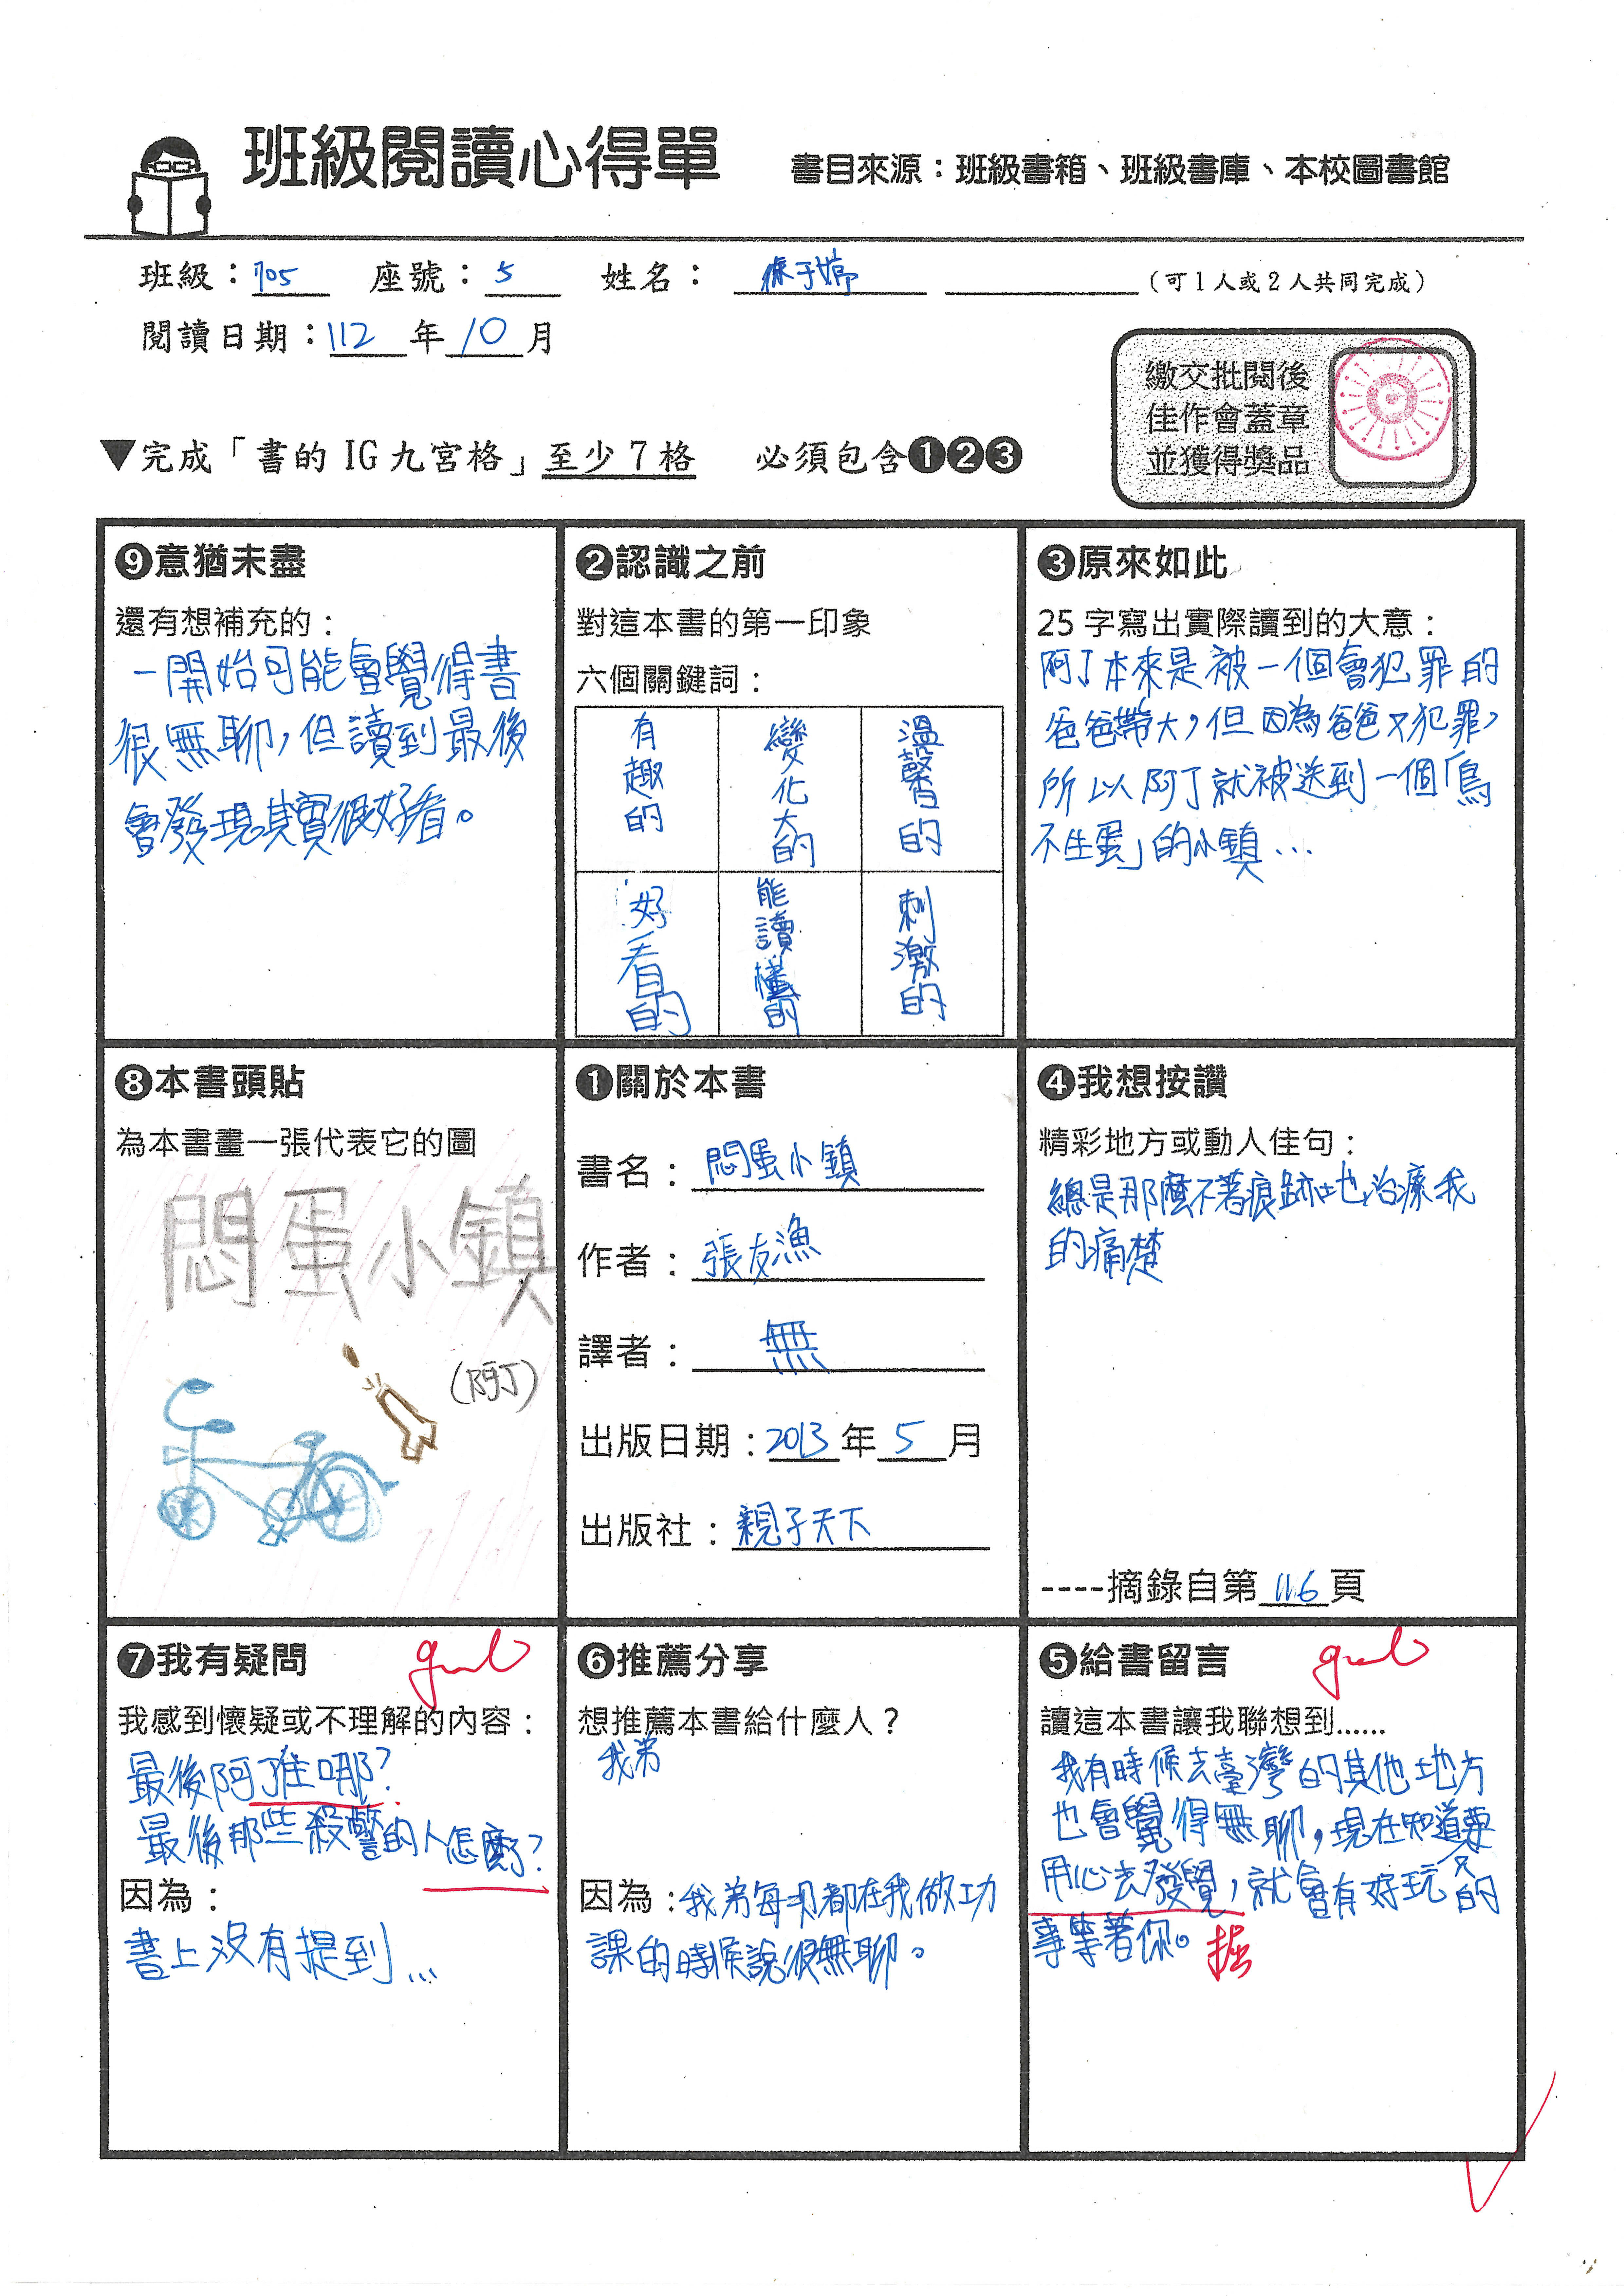 班級閱讀心得單
書目來源：班級書箱、班級書庫、本校圖書館
班級：705 座號：5 姓名：子婷 （可1人或2人共同完成）
閱讀日期：112年10月
繳交批閱後
佳作會蓋章
並獲得獎品
▼完成「書的IG九宮格」至少7格 必須包含❶❷❸
❾意猶未盡
還有想補充的：
一開始可能會覺得書
很無聊，但讀到最後
會發現其實很好看。
❷認識之前
對這本書的第一印象
六個關鍵詞：
有趣的
變化大的
溫馨的
好看的
能讀懂的
刺激的
❸原來如此
25字寫出實際讀到的大意：
阿丁本來是被一個會犯罪的
爸爸帶大，但因為爸爸又犯罪，
所以阿丁就被送到一個「鳥
不生蛋」的小鎮…
❽本書頭貼
為本書畫一張代表它的圖
悶蛋小鎮
(阿丁)
❶關於本書
書名：悶蛋小鎮
作者：張友漁
譯者：無
出版日期：2013年5月
出版社：親子天下
❹我想按讚
精彩地方或動人佳句：
總是那麼不著痕跡地治療我
的痛楚
----摘錄自第116頁
❼我有疑問
good
我感到懷疑或不理解的內容：
最後阿丁誰哪？
最後那些殺警的人怎麼了？
因為：
書上沒有提到…
❻推薦分享
想推薦本書給什麼人？
我弟
因為：我弟每次都在我做功
課的時候說很無聊。
❺給書留言
good
讀這本書讓我聯想到......
我有時候去臺灣的其他地方
也會覺得無聊，現在知道要
用心去發覺，就會有好玩的
事等著你。
掘